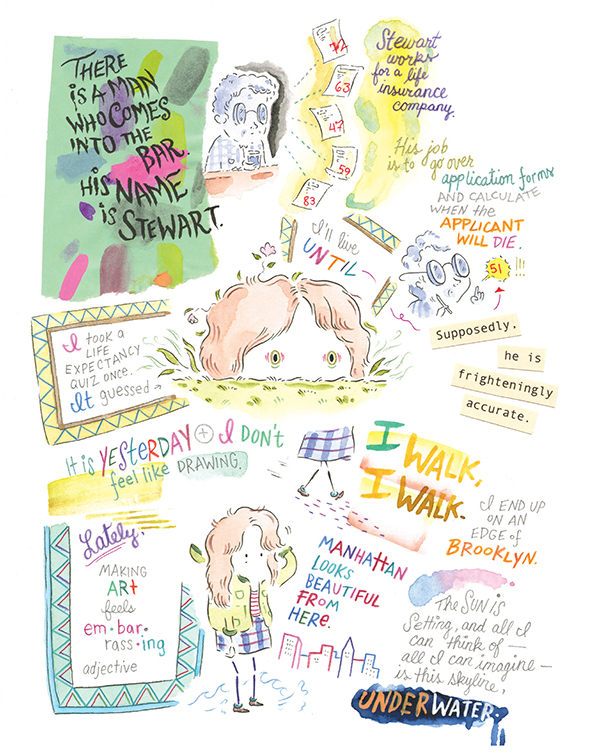 THERE
iS A MAN
WHO COMES
INTO THE
BAR.
HiS NAME
iS STEWART.
63
47
59
83
Stewart
works
for a life
insurance
company.
His job
is to go over
application forms
AND CALCULATE
WHEN the
APPLICANT
WILL DIE.
51 !!!
Supposedly,
he is
frighteningly
accurate.
I'll live
UNTIL
I took a
LIFE
EXPECTANCY
QUIZ ONCE.
It guessed →
It is YESTERDAY + I DON'T
feel like DRAWING.
I WALK,
I WALK.
I END UP
ON AN
EDGE of
BROOKLYN.
Lately,
MAKING
ARt
feels
em•bar•
rass•ing
adjective
MANHATTAN
LOOKS
BEAUTIFUL
FROM
HERe.
The SUN IS
Setting, and all I
can think of —
all I can imagine —
is this skyline,
UNDERWATER.